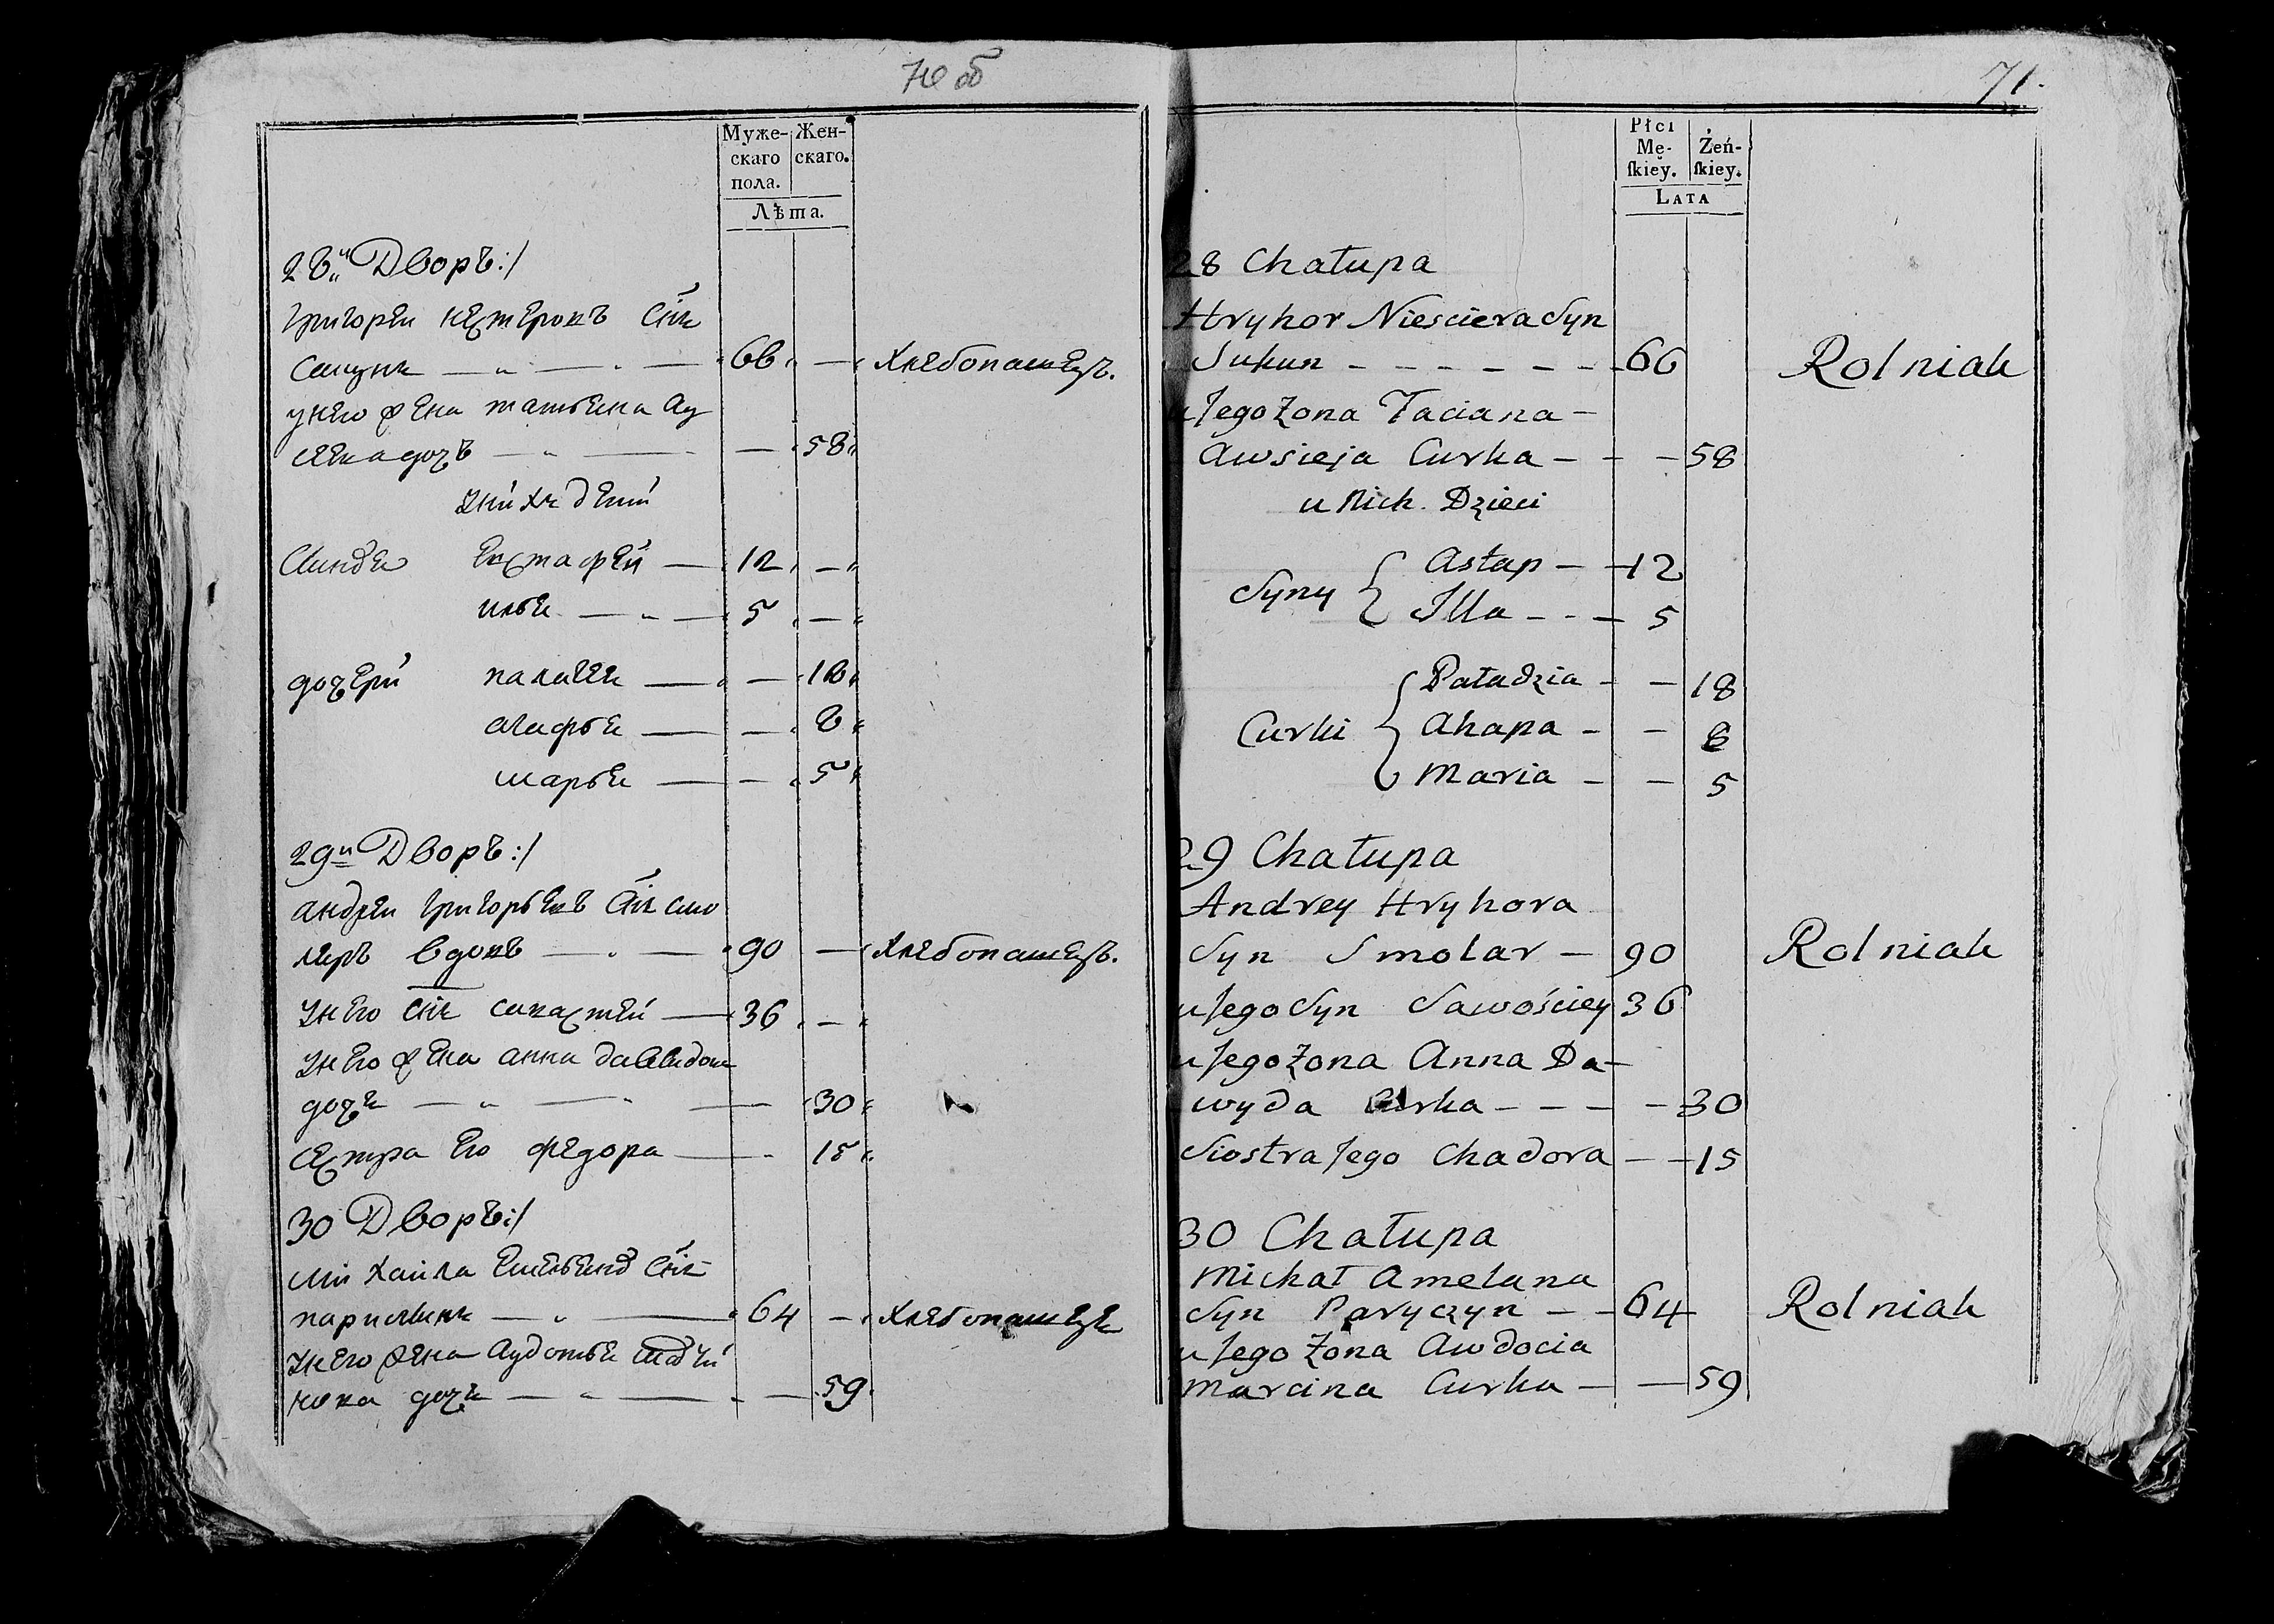 70 об
Муже-
скаго
пола.
Жен-
скаго.
Лѣта.
28й Дворъ:/
Григорей нестеровъ Снъ
66 — Хлебопашецъ.
у него жена татьяна ав
сеева дочь — 58
у них дети
Синове Евстафей — 12 —
илья — 5 —
дочери палагея — 18
агафья — 8
марья — 5
29й Дворъ:/
андрей григорьевъ Снъ смо
ляръ вдовъ — 90 — Хлебопашецъ.
у него снъ савастей — 36 —
у него жена анна давыдова
дочь — 30
сестра его федора — 15
30 Дворъ:/
михайла Емельяновъ Снъ
64 — Хлебопашецъ
у него жена авдотья
дочь — 59
71.
Płci
Mę-
ſkiéy.
Żeń-
ſkiey.
LATA
28 Chałupa
Hryhor Niesciera Syn
Sukun - - - - - - 66 Rolniak
u Jego Żona Taciana —
Awsieja Curka - - - 58
u Nich. Dzieci
Syny { Astap - - 12
Illa - - - 5
Curki { Paładzia - - 18
Ahapa - - 8
Maria - - 5
29 Chałupa
Andrey Hryhora
Syn Smolar - 90 Rolniak
u Jego Syn Sawościey 36
u Jego Żona Anna Da-
wyda Curka - - - - 30
Siostra Jego Chadora - - 15
30 Chałupa
Michał Amelana
Syn Paryczyn - - 64 Rolniak
u Jego Żona Awdocia
Marcina Curka - - 59